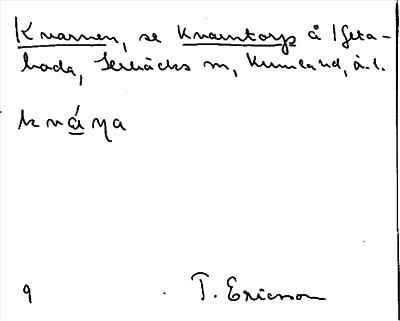 Kvarnen, se Kvarntorp å Igeta-
boda, Lerbäcks sn, Kumla hd, ä.l.
kváṇa
9 T. Ericsson